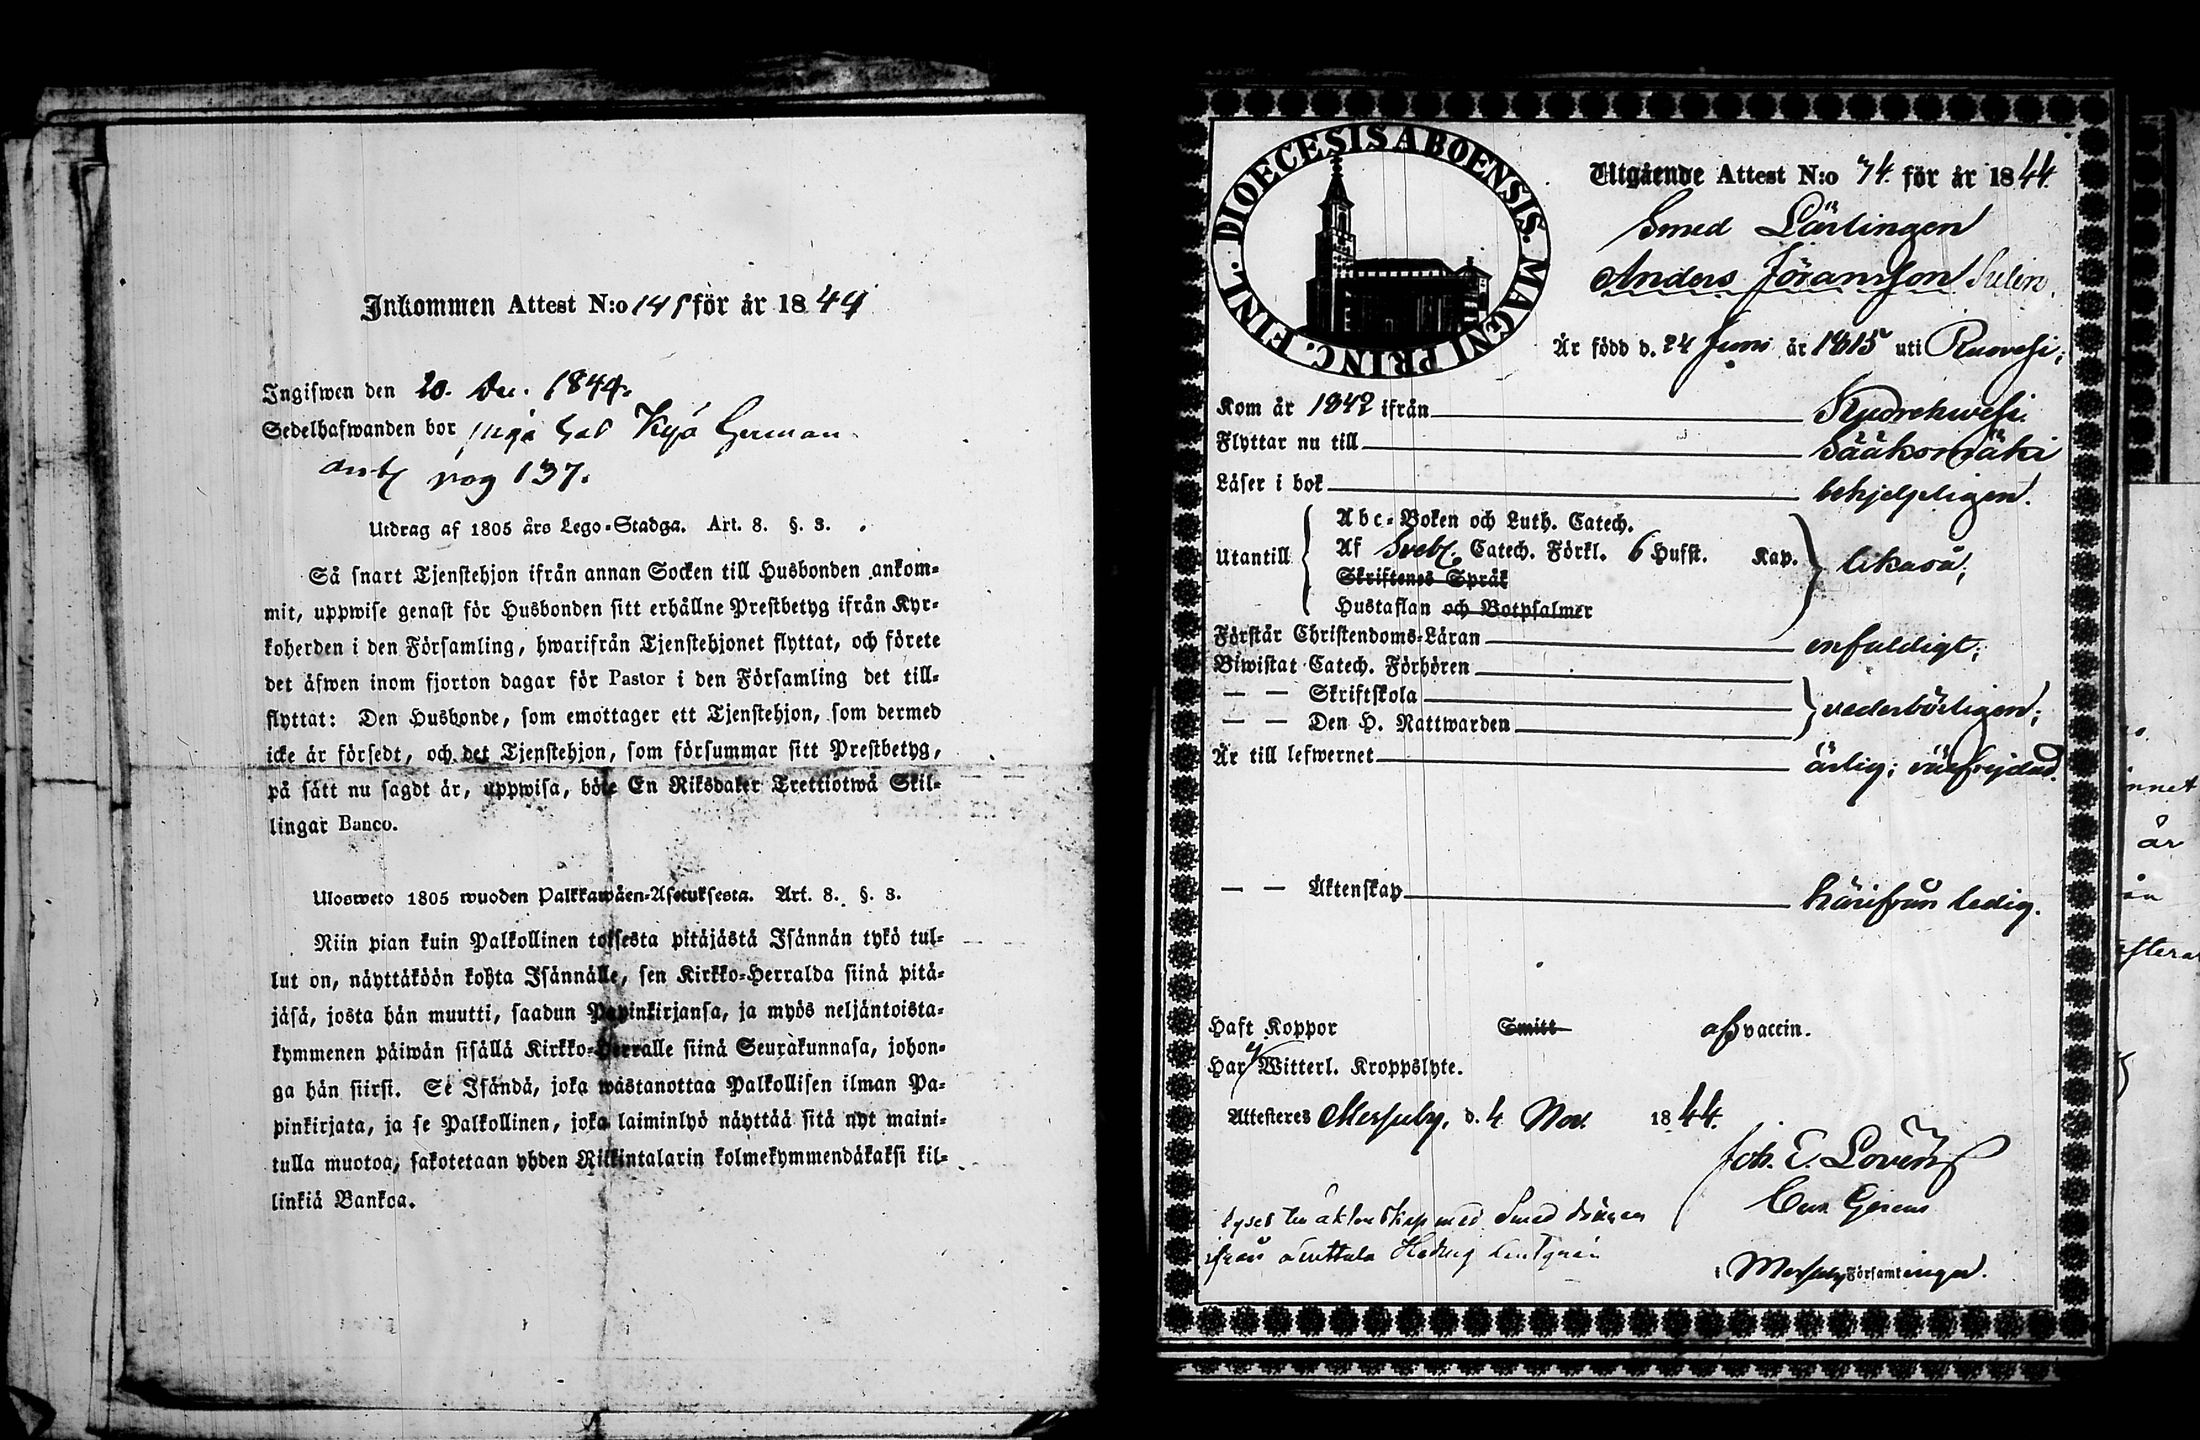 Inkommen Attest N:o 145 för år 1844
Ingifwen den 20. Dec. 1844.
Sedelhafwanden bor
pag 137.
Utdrag af 1805 års Lego-Stadga. Art. 8. §. 3.
Så snart Tjenstehjon ifrån annan Socken till Husbonden ankom-
mit, uppwise genast för Husbonden sitt erhållne Prestbetyg ifrån Kyr-
koherden i den Församling, hwarifrån Tjenstehjonet flyttat, och förete
det äfwen inom fjorton dagar för Pastor i den Församling det till-
flyttat: Den Husbonde, som emottager ett Tjenstehjon, som dermed
icke är försedt, och det Tjenstehjon, som försummar sitt Prestbetyg,
på sätt nu sagdt är, uppwisa, böte En Riksdaler Trettiotwå Skil-
lingar Banco.
Ulosweto 1805 wuoden Palkkawäen-Asetuksesta. Art. 8. §. 3.
Niin pian kuin Palkollinen toisesta pitäjästä Isännän tykö tul-
lut on, näyttäköön kohta Isännälle, sen Kirkko-Herralda siinä pitä-
jäsä, josta hän muutti, saadun Papinkirjansa, ja myös neljäntoista-
kymmenen päiwän sisällä Kirkko-Herralle siinä Seurakunnasa, johon-
ga hän siirsi. Se Isändä, joka wastanottaa Palkollisen ilman Pa-
pinkirjata, ja se Palkollinen, joka laiminlyö näyttää sitä nyt maini-
tulla muotoa, sakotetaan yhden Riikintalarin kolmekymmendäkaksi kil-
linkiä Bankoa.
DIOECESIS ABOENSIS. MAGNI PRINC. FINL.
Utgående Attest N:o 74. för år 1844.
Smed Lärlingen
Anders Jöransson Sulin.
Är född d. 24 Juni år 1815 uti Ruovesi;
Kom år 1842 ifrån Kyrohwesi.
Flyttar nu till Sääksmäki
Läser i bok behjelpligen.
Utantill
Abc-Boken och Luth. Catech.
Af Sveb. Catech. Förkl. 6 Hufst. Kap. likaså;
Skriftenes Språk
Hustaflan och Botpsalmer
Förstår Christendoms-Läran enfaldigt;
Biwistat Catech. Förhören
— — Skriftskola
— — Den H. Nattwarden vederbörligen;
Är till lefwernet ärlig; välfrejdad.
— — Äktenskap härifrån ledig.
Haft Koppor Smitt af vaccin.
Har Witterl. Kroppslyte.
Attesteres Messuby, d. 4 Nov. 1844.
Joh. E. Lovén
Cur. Gerens
i Messuby Församlingen.
lyses till äktenskap med Smed
ifrån Hedvig